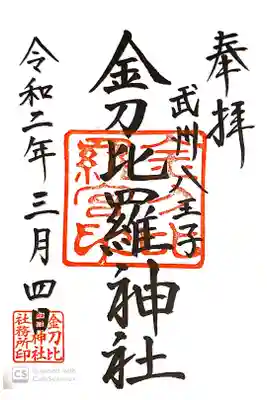 奉拝
武州八王子
金刀比羅神社
令和二年三月四日
金刀比羅神社社務所印
CS Scanned with CamScanner